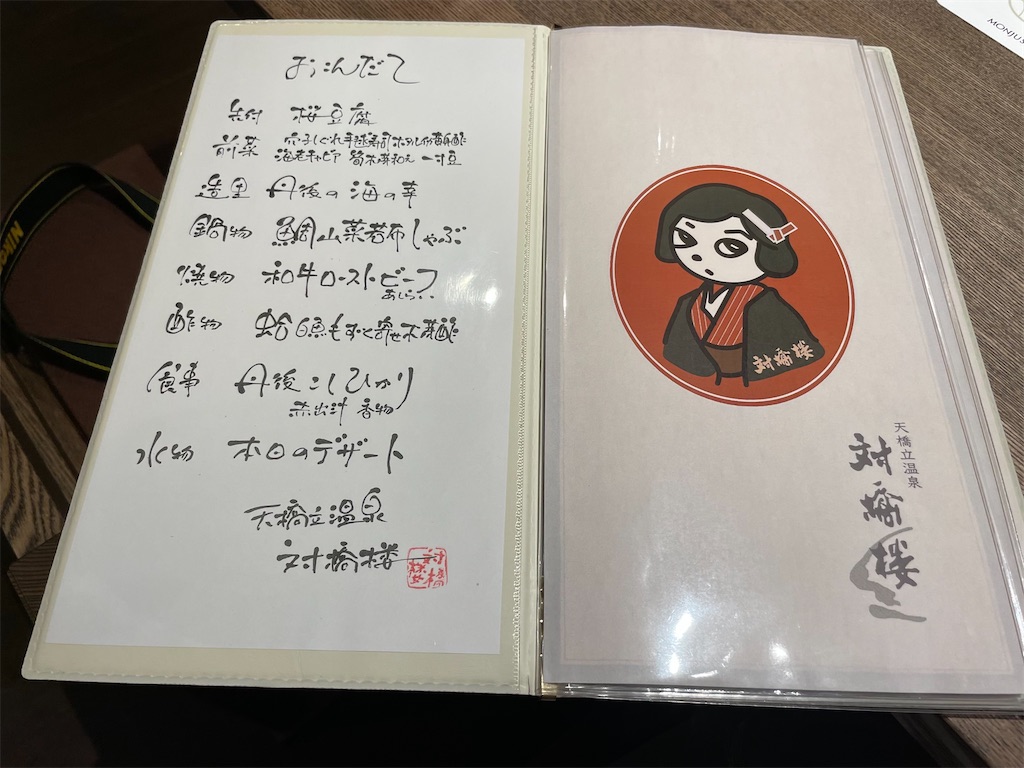 おこんだて
先付 桜豆腐
前菜 穴子しぐれ手毬寿司 ホタルイカ黄身酢
海老キャビア 筍木の芽和え 一寸豆
造里 丹後の海の幸
鍋物 鯛山菜若布しゃぶ
焼物 和牛ローストビーフ
あしらい
酢物 蛤白魚もずく寄せ木の芽酢
食事 丹後こしひかり
赤出汁 香物
水物 本日のデザート
天橋立温泉
対橋楼
対橋楼
天橋立温泉
対橋楼
MONJUS